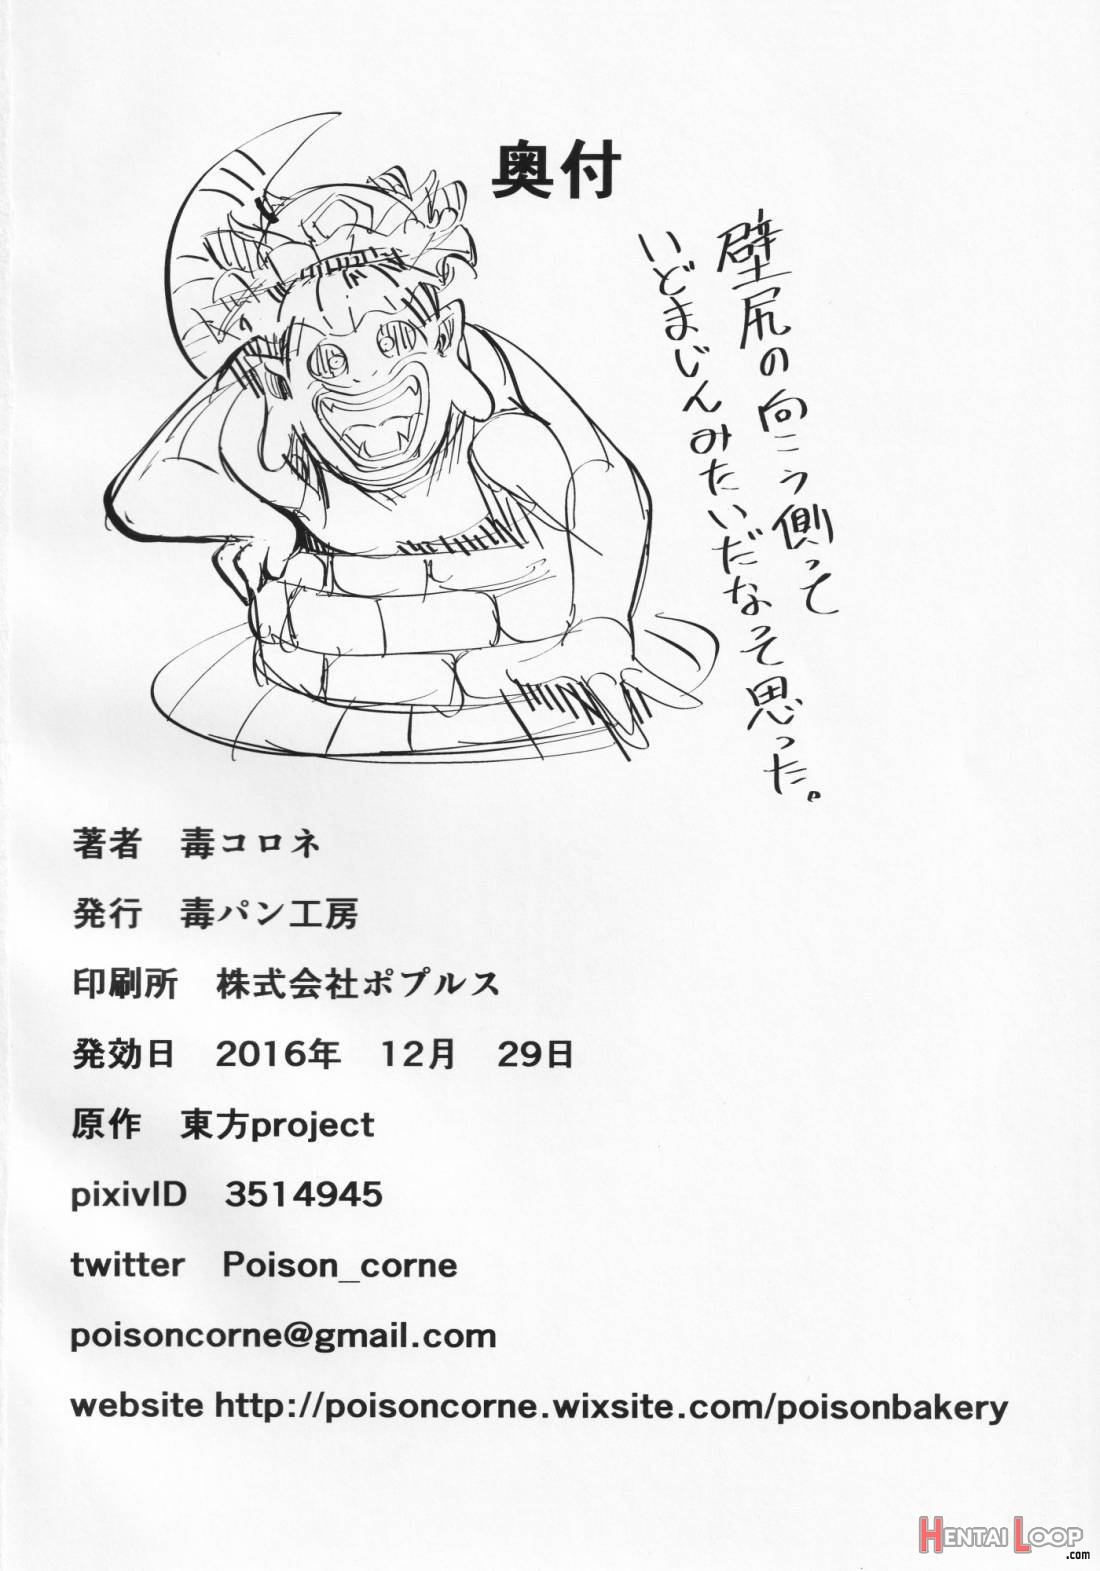 奥付
壁尻の向こう側って
いどまじんみたいだなって思った。
著者　毒コロネ
発行　毒パン工房
印刷所　株式会社ポプルス
発効日　2016年　12月　29日
原作　東方project
pixivID　3514945
twitter　Poison_corne
poisoncorne@gmail.com
website http://poisoncorne.wixsite.com/poisonbakery
HENTAI LOOP
.com